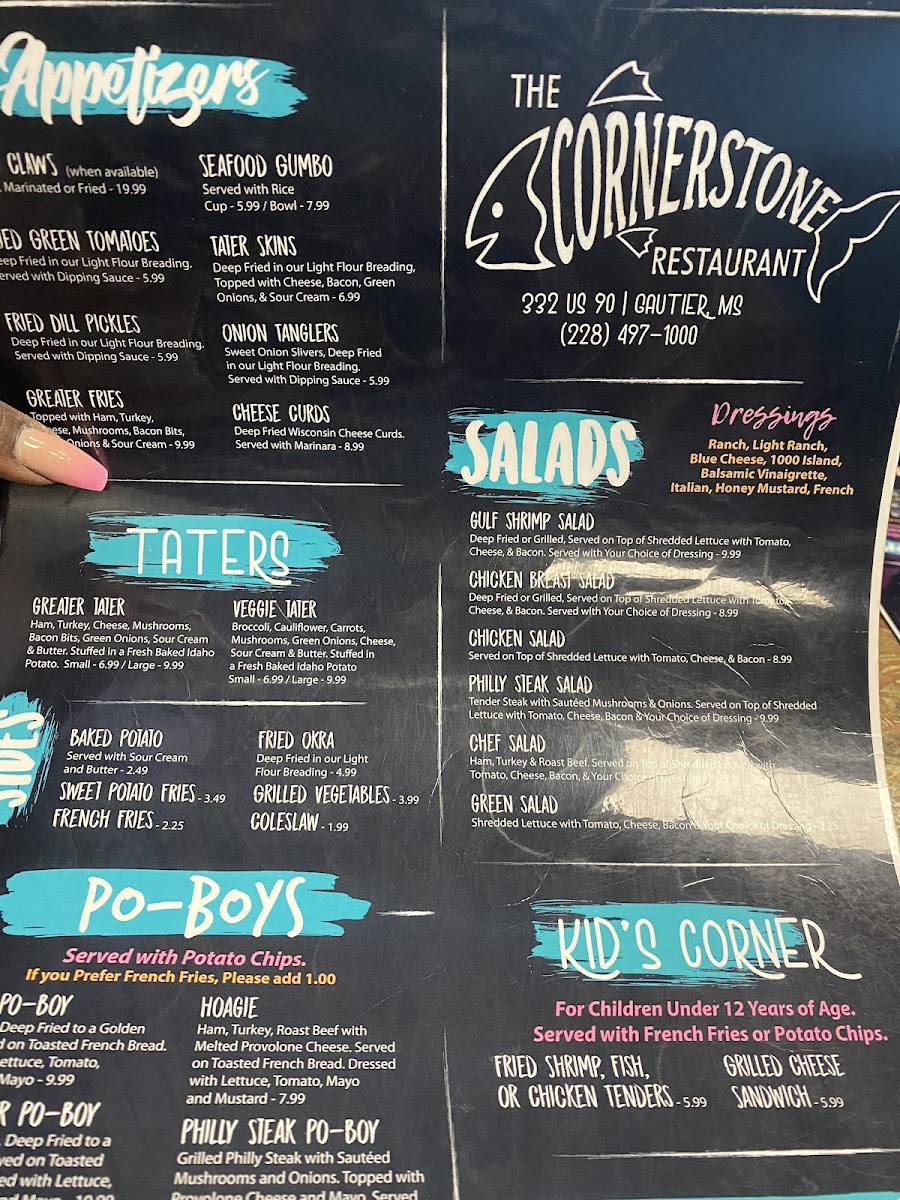 Appetizers
CLAWS (when available)
Marinated or Fried - 19.99
GREEN TOMATOES
in our Light Flour Breading.
with Dipping Sauce - 5.99
FRIED DILL PICKLES
Deep Fried in our Light Flour Breading.
Served with Dipping Sauce - 5.99
GREATER FRIES
Topped with Ham, Turkey,
Mushrooms, Bacon Bits,
Onions & Sour Cream - 9.99
SEAFOOD GUMBO
Served with Rice
Cup - 5.99 / Bowl - 7.99
TATER SKINS
Deep Fried in our Light Flour Breading,
Topped with Cheese, Bacon, Green
Onions, & Sour Cream - 6.99
ONION TANGLERS
Sweet Onion Slivers, Deep Fried
in our Light Flour Breading.
Served with Dipping Sauce - 5.99
CHEESE CURDS
Deep Fried Wisconsin Cheese Curds.
Served with Marinara - 8.99
TATERS
GREATER TATER
Ham, Turkey, Cheese, Mushrooms,
Bacon Bits, Green Onions, Sour Cream
& Butter. Stuffed in a Fresh Baked Idaho
Potato. Small - 6.99 / Large - 9.99
VEGGIE TATER
Broccoli, Cauliflower, Carrots,
Mushrooms, Green Onions, Cheese,
Sour Cream & Butter. Stuffed in
a Fresh Baked Idaho Potato
Small - 6.99 / Large - 9.99
SIDES
BAKED POTATO
Served with Sour Cream
and Butter - 2.49
SWEET POTATO FRIES - 3.49
FRENCH FRIES - 2.25
FRIED OKRA
Deep Fried in our Light
Flour Breading - 4.99
GRILLED VEGETABLES - 3.99
COLESLAW - 1.99
PO-BOYS
Served with Potato Chips.
If you Prefer French Fries, Please add 1.00
PO-BOY
Deep Fried to a Golden
on Toasted French Bread.
Tomato,
Mayo - 9.99
PO-BOY
Deep Fried to a
on Toasted
with Lettuce,
HOAGIE
Ham, Turkey, Roast Beef with
Melted Provolone Cheese. Served
on Toasted French Bread. Dressed
with Lettuce, Tomato, Mayo
and Mustard - 7.99
PHILLY STEAK PO-BOY
Grilled Philly Steak with Sautéed
Mushrooms and Onions. Topped with
Provolone Cheese and Mayo. Served
THE
CORNERSTONE
RESTAURANT
332 US 90 | GAUTIER, MS
(228) 497-1000
SALADS
Dressings
Ranch, Light Ranch,
Blue Cheese, 1000 Island,
Balsamic Vinaigrette,
Italian, Honey Mustard, French
GULF SHRIMP SALAD
Deep Fried or Grilled, Served on Top of Shredded Lettuce with Tomato,
Cheese, & Bacon. Served with Your Choice of Dressing - 9.99
CHICKEN BREAST SALAD
Deep Fried or Grilled, Served on Top of Shredded Lettuce with Tomato,
Cheese, & Bacon. Served with Your Choice of Dressing - 8.99
CHICKEN SALAD
Served on Top of Shredded Lettuce with Tomato, Cheese, & Bacon - 8.99
PHILLY STEAK SALAD
Tender Steak with Sautéed Mushrooms & Onions. Served on Top of Shredded
Lettuce with Tomato, Cheese, Bacon & Your Choice of Dressing - 9.99
CHEF SALAD
Ham, Turkey & Roast Beef. Served on Top of Shredded Lettuce with
Tomato, Cheese, Bacon, & Your Choice of Dressing
GREEN SALAD
Shredded Lettuce with Tomato, Cheese, Bacon & Your Choice of Dressing - 3.25
KID'S CORNER
For Children Under 12 Years of Age.
Served with French Fries or Potato Chips.
FRIED SHRIMP, FISH,
OR CHICKEN TENDERS - 5.99
GRILLED CHEESE
SANDWICH - 5.99